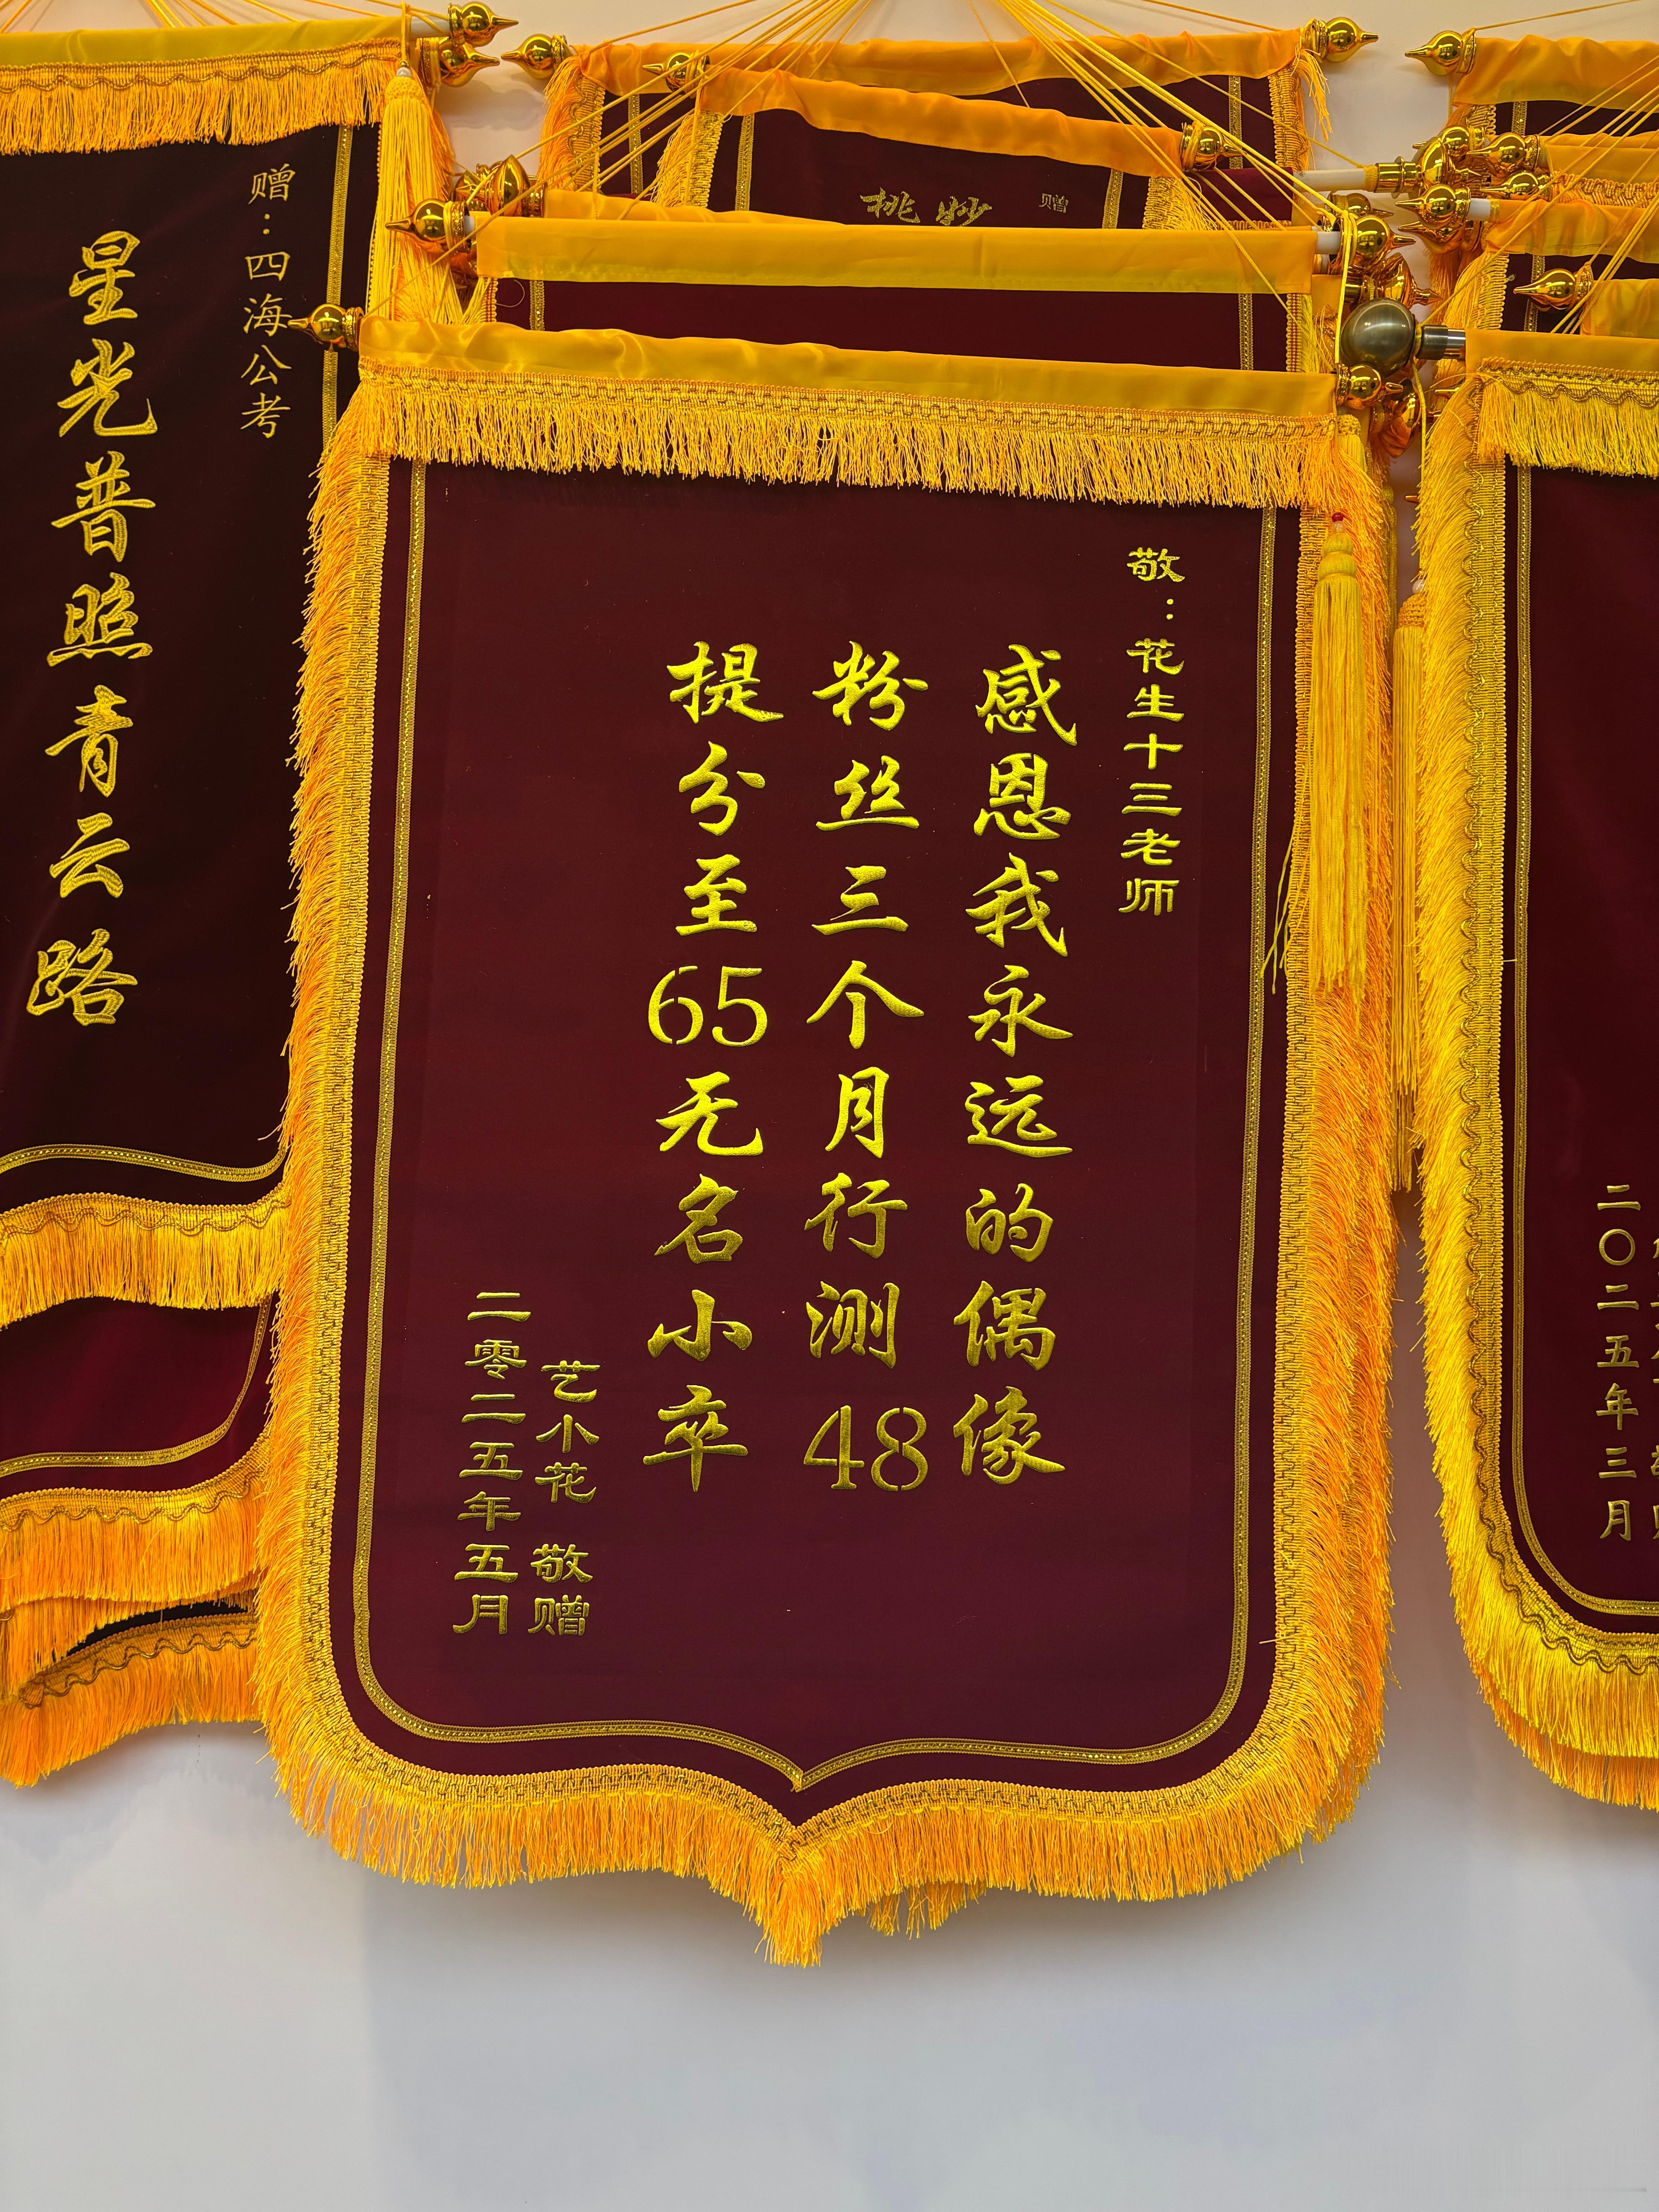 敬：花生十三老师
感恩我永远的偶像
粉丝三个月行测48
提分至65无名小卒
艺小花 敬赠
二零二五年五月
赠：四海公考
星光普照青云路
赠
桃
二〇二五年三月